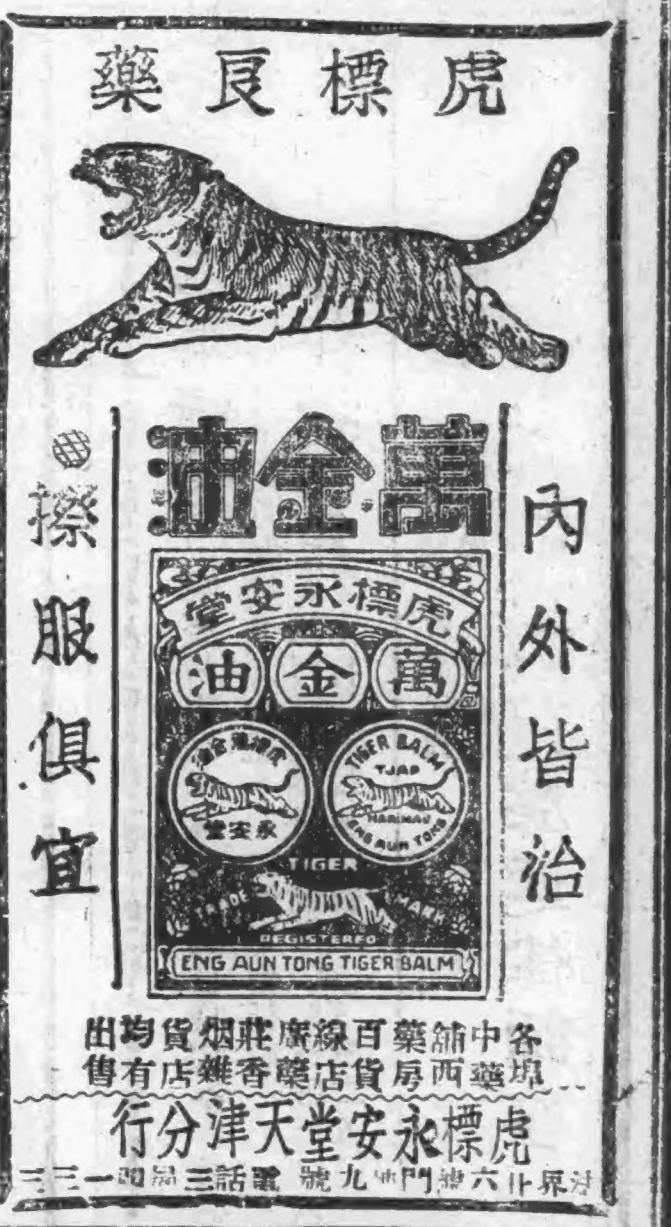 虎標良藥
萬金油
內外皆治
擦服俱宜
虎標永安堂
萬金油
虎標萬金油
永安堂
TIGER BALM
TJAP
HARIMAU
ENG AUN TONG
TIGER
TRADE MARK
REGISTERED
ENG AUN TONG TIGER BALM
各埠中藥舖西藥房百貨線店廣藥莊香烟雜貨店均有出售
虎標永安堂天津分行
法界廿六號門牌九號 電話三局四一三三